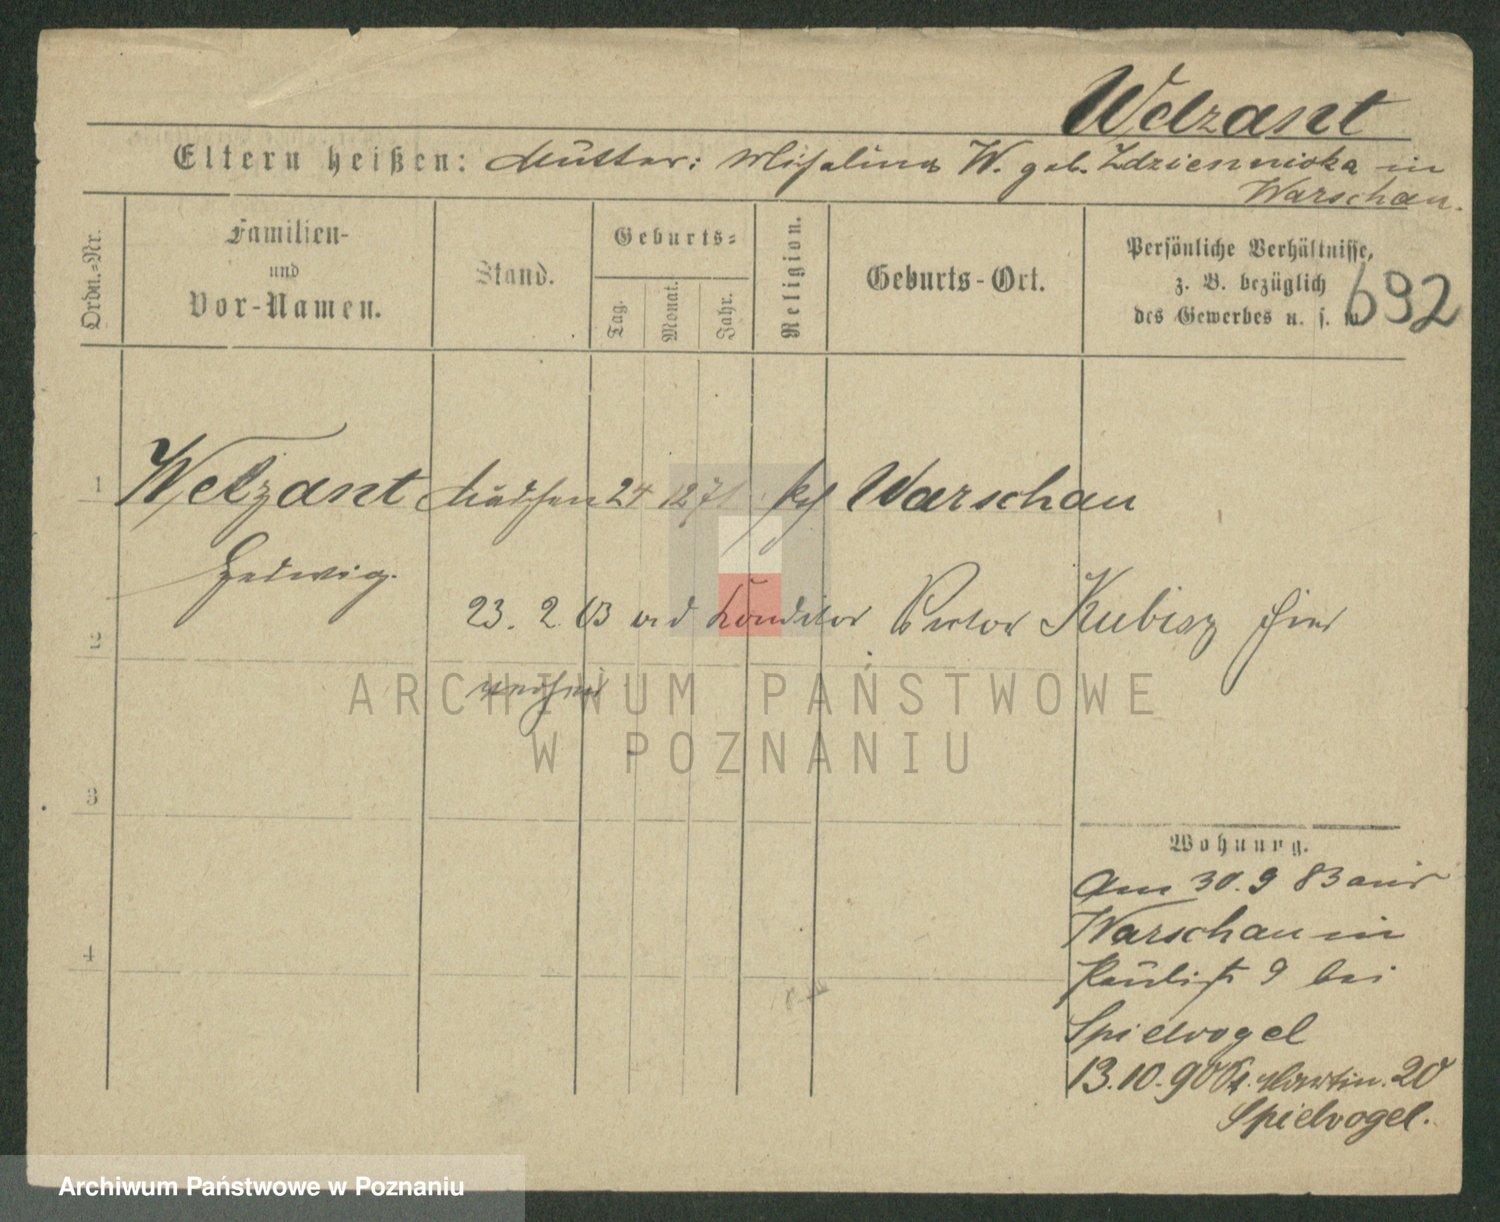 Welzant
Eltern heißen: Mutter: Michalina W. geb. Zdziennicka in
Warschau.
Ordn.-Nr.
Familien-
und
Vor-Namen.
Stand.
Geburts-
Tag.
Monat.
Jahr.
Religion.
Geburts-Ort.
Persönliche Verhältnisse,
z. B. bezüglich
des Gewerbes u. s. w
692
1 Welzant Mädchen 24 12 71 kath Warschau
Hedwig.
23. 2. 03 Konditor Kubisz hier
2
3
4
Wohnung.
Am 30. 9 83 aus
Warschau in
Paulist 9 bei
Spielvogel
13. 10. 90 St. Martin. 20
Spielvogel.
ARCHIWUM PAŃSTWOWE
W POZNANIU
Archiwum Państwowe w Poznaniu